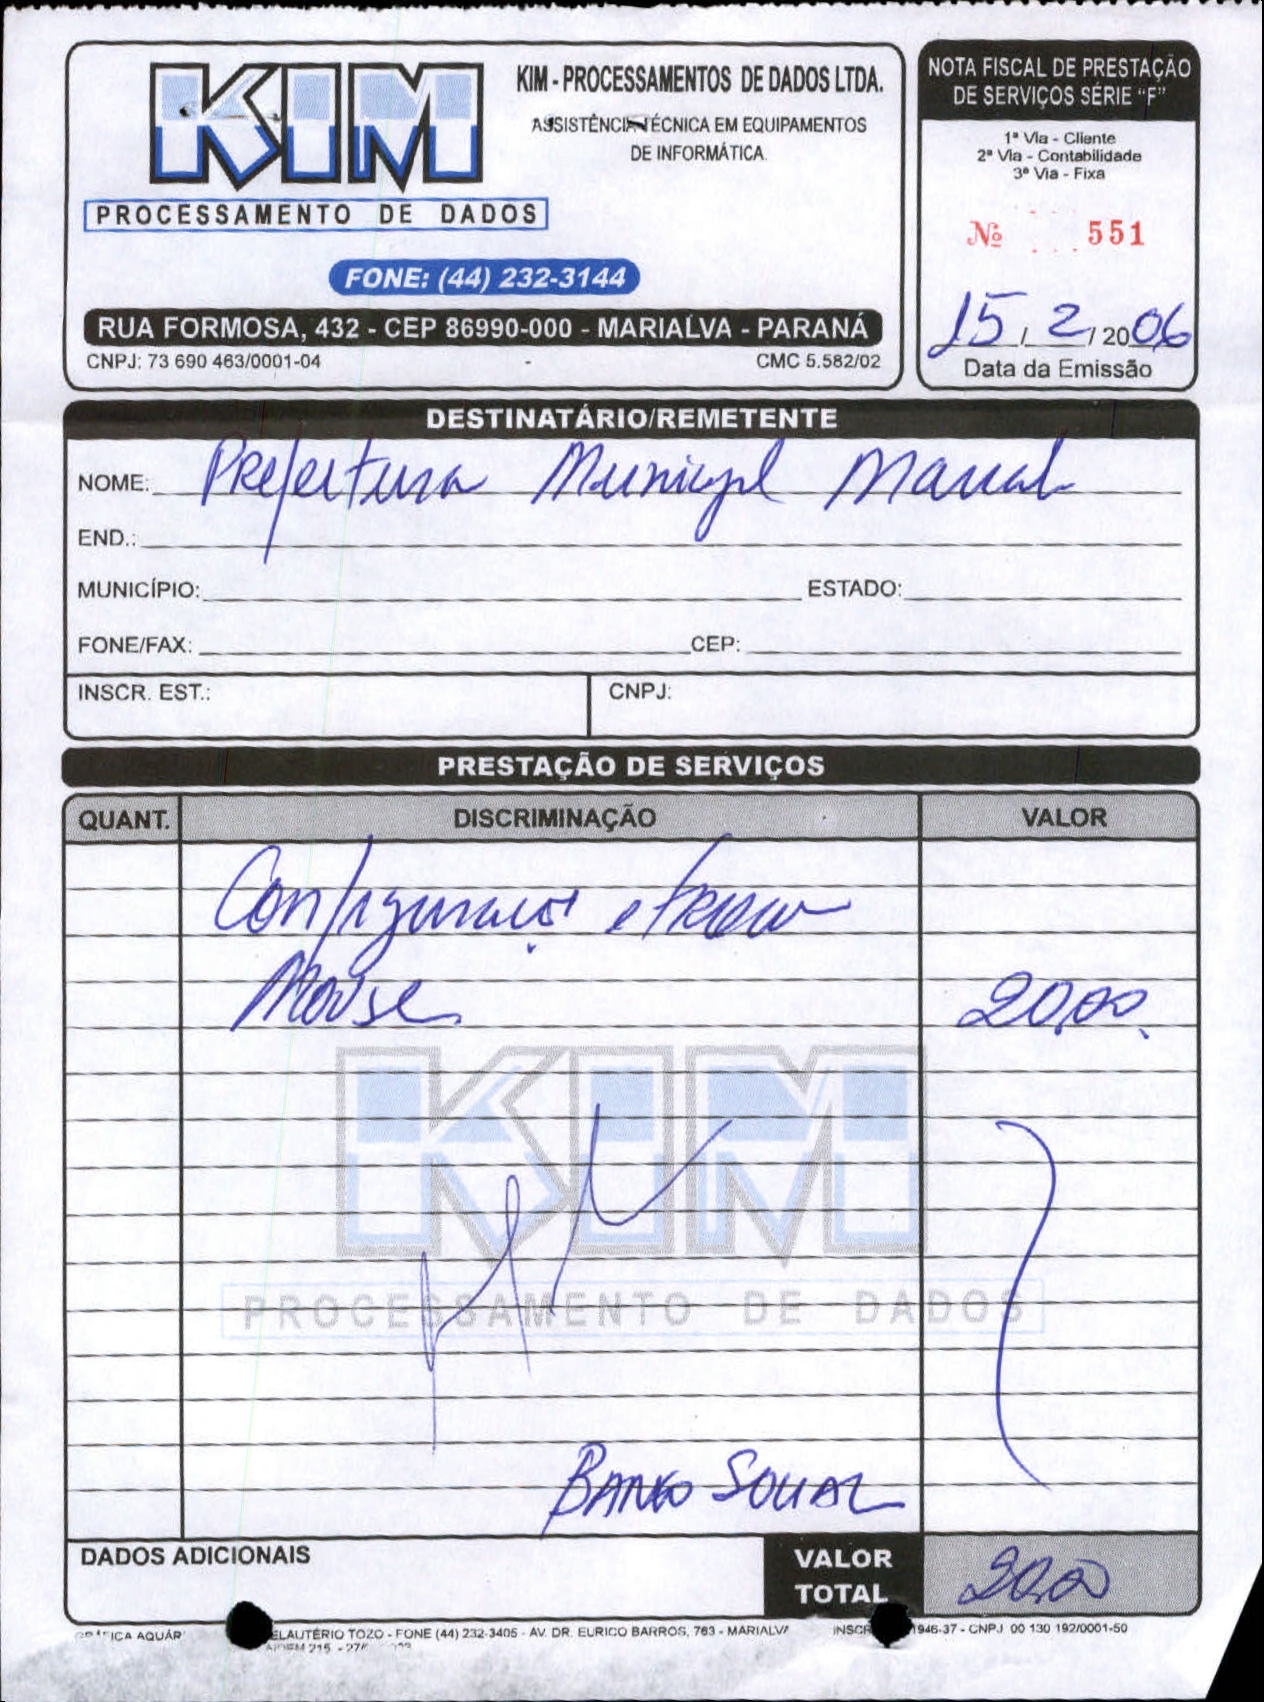 KIM
PROCESSAMENTO DE DADOS
KIM - PROCESSAMENTOS DE DADOS LTDA.
ASSISTÊNCIA TÉCNICA EM EQUIPAMENTOS
DE INFORMÁTICA
FONE: (44) 232-3144
RUA FORMOSA, 432 - CEP 86990-000 - MARIALVA - PARANÁ
CNPJ: 73 690 463/0001-04 CMC 5.582/02
NOTA FISCAL DE PRESTAÇÃO
DE SERVIÇOS SÉRIE "F"
1ª Via - Cliente
2ª Via - Contabilidade
3ª Via - Fixa
Nº 551
15 / 2 / 2006
Data da Emissão
DESTINATÁRIO/REMETENTE
NOME: Prefeitura Municipal
END.:
MUNICÍPIO: ESTADO:
FONE/FAX: CEP:
INSCR. EST.: CNPJ:
PRESTAÇÃO DE SERVIÇOS
QUANT. DISCRIMINAÇÃO VALOR
Configuração e
Mouse 20,00
KIM
PROCESSAMENTO DE DADOS
Banco Social
DADOS ADICIONAIS VALOR TOTAL 20,00
ELAUTÉRIO TOZO - FONE (44) 232-3405 - AV. DR. EURICO BARROS, 763 - MARIALV 946-37 - CNPJ 00 130 192/0001-50